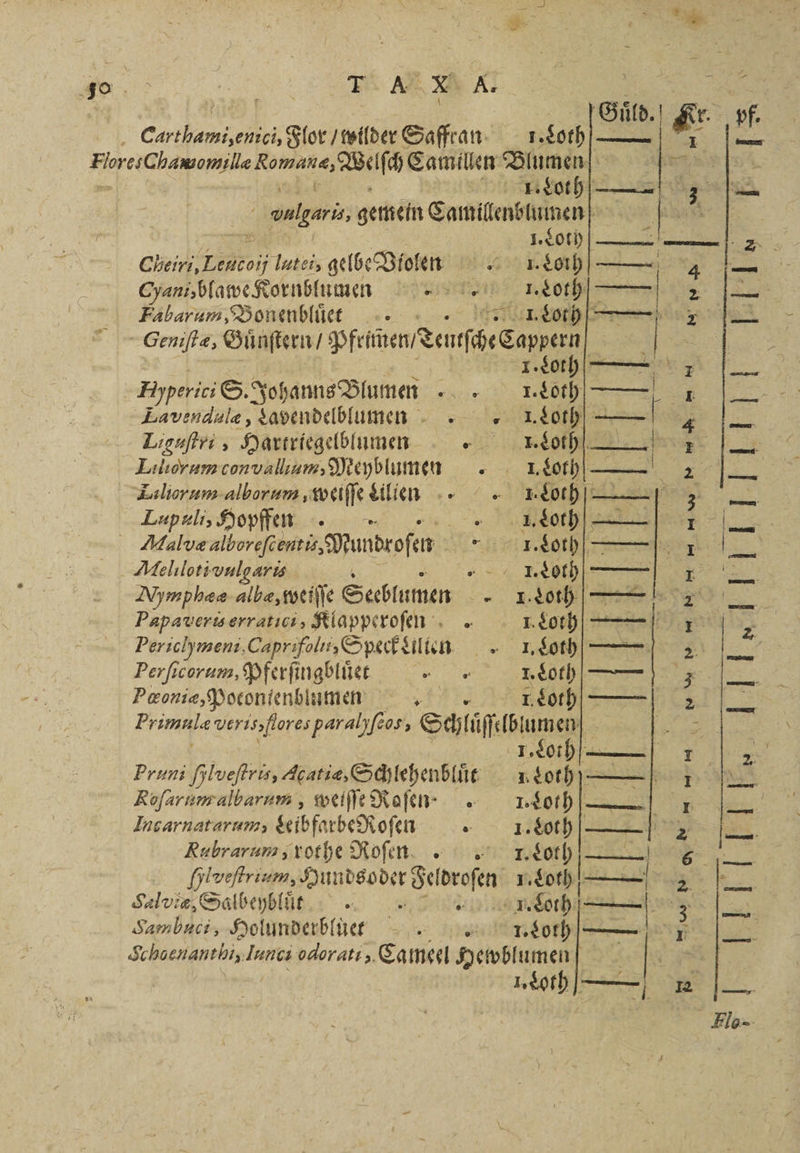 50 T A X A.
Güld. Kr. pf.
Carthami,enici, Flor / wilder Saffran 1.Loth —— 1 —
Flores Chamomillæ Romanæ, Welsch Camillen Blumen
1.Loth —— 3 —
vulgaris, gemein Camillenblumen
1.Loth —— —— 2
Cheiri, Leucoij lutei, gelbe Violen . 1.Loth —— 4 —
Cyani, blawe Kornblumen . . 1.Loth —— 2 —
Fabarum, Bonenblüet . . . 1.Loth —— 2 —
Genistæ, Günstern / Pfrimen/Teutsche Cappern
1.Loth —— 1 —
Hyperici S. Johanns Blumen . . 1.Loth —— 1 —
Lavendulæ, Lavendelblumen . . 1.Loth —— 4 —
Ligustri, Hartriegelblumen . 1.Loth —— 1 —
Liliorum convallium, Meyblumen . 1.Loth —— 2 —
Liliorum alborum, weisse Lilien . . 1.Loth —— 3 —
Lupuli, Hopffen . . . . 1.Loth —— 1 —
Malvæ alborescentis, Mundrosen . 1.Loth —— 1 —
Meliloti vulgaris . . . 1.Loth —— 1 —
Nymphææ albæ, weisse Seeblumen . 1.Loth —— 2 —
Papaveris erratici, Klapperosen . . 1.Loth —— 1 2
Periclymeni. Caprifolii, Speck Lilien . 1.Loth —— 2 —
Persicorum, Pfersingblüet . . 1.Loth —— 3 —
Pœoniæ, Poeonienblumen . . 1.Loth —— 2 —
Primulæ veris, flores paralyseos, Schlüsselblumen
1.Loth —— 1 2
Pruni sylvestris, Acatiæ, Schlehenblüt 1.Loth —— 1 —
Rosarum albarum, weisse Rosen . 1.Loth —— 1 —
Incarnatarum, leibfarbe Rosen . 1.Loth —— 2 —
Rubrarum, rothe Rosen . . 1.Loth —— 6 —
sylvestrium, Hunds oder Feldrosen 1.Loth —— 2 —
Salviæ, Salbeyblüt . . . 1.Loth —— 3 —
Sambuci, Holunderblüet . . 1.Loth —— 1 —
Schoenanthi, Iunci odorati, Cameel Hewblumen
1.Loth —— 12 —
Flo-